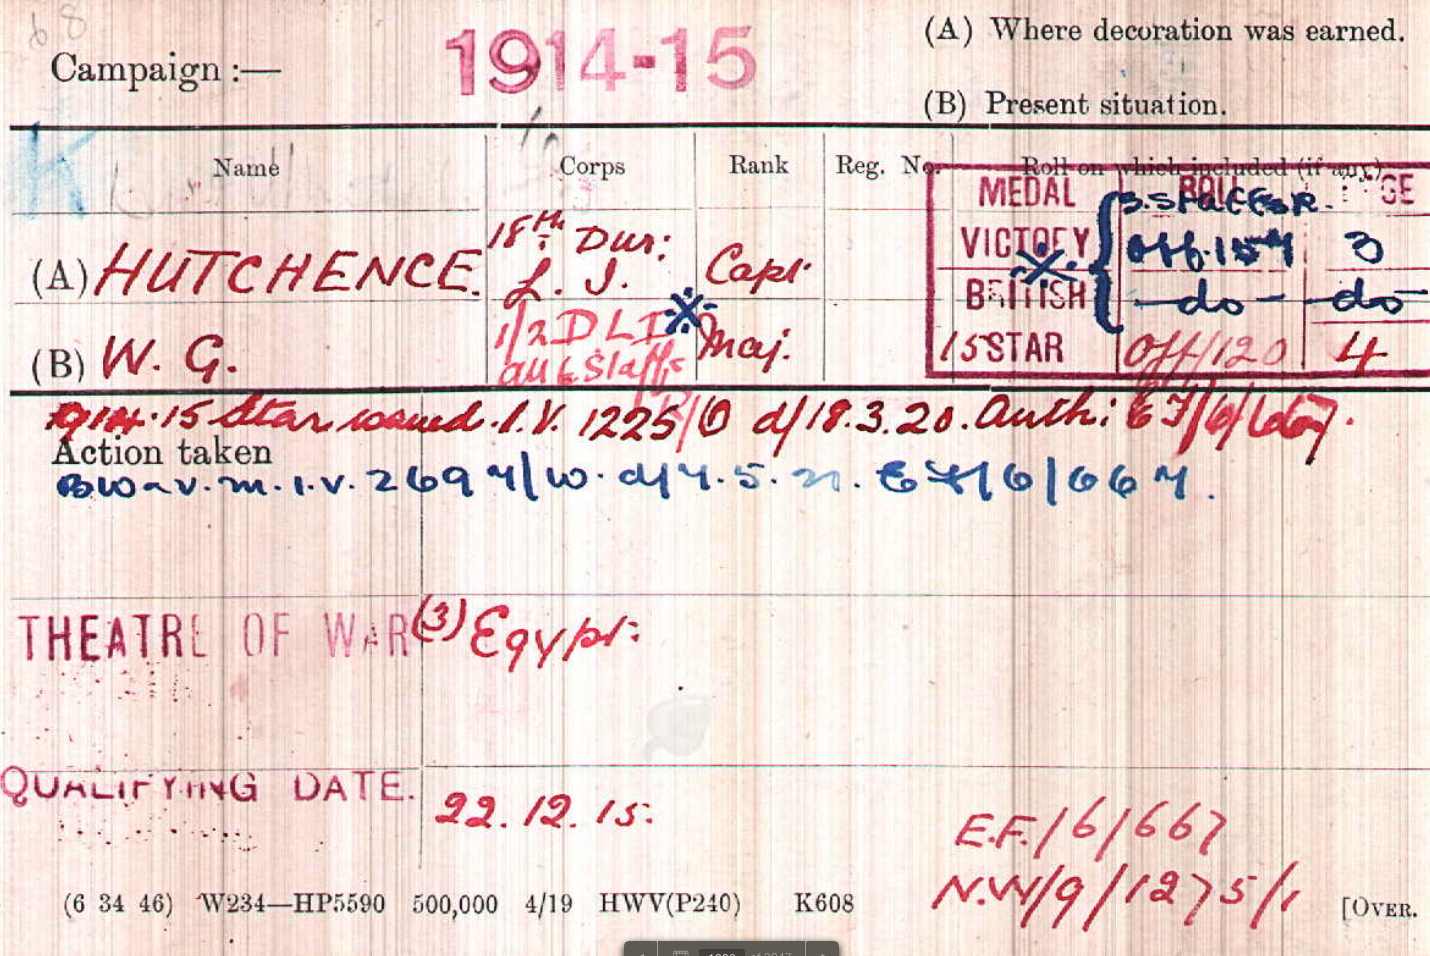 68
Campaign :— 1914-15
(A) Where decoration was earned.
(B) Present situation.
K
Name Corps Rank Reg. No. Roll on which included (if any)
MEDAL ROLL GE
(A) HUTCHENCE. 18TH Dur: L. I. Capt.
VICTORY Off. 157 3
BRITISH —do— —do—
(B) W. G. 1/2 D L I Maj.
15 STAR Off/120 4
1914.15 Star issued. I.V. 1225/O d/18.3.20. Auth: EF/6/667.
Action taken
BW & V. M. I. V. 2697/W. d/4.5. EF/6/667.
THEATRE OF WAR (3) Egypt.
QUALIFYING DATE. 22. 12. 15.
E.F./6/667
N.W/9/1275/1
(6 34 46) W234—HP5590 500,000 4/19 HWV(P240) K608 [OVER.